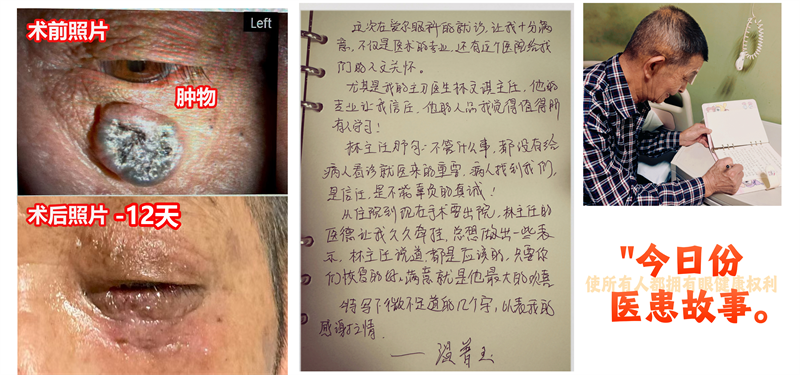 术前照片
Left
肿物
术后照片 -12天
这次在爱尔眼科的就诊，让我十分满
意，不仅是医术的专业，还有这个医院给我
们的人文关怀。
尤其是我的主刀医生林文祺主任，他的
专业让我信任，他的人品我觉得值得所
有人学习！
林主任那句：不管什么事，都没有给
病人看诊就医来的重要，病人找到我们，
是信任，是不能辜负的真诚！
从住院到现在手术要出院，林主任的
医德让我久久牵挂，总想做出一些表
示，林主任说道，都是应该的，只要你
们恢复的好，满意就是他最大的欢喜
特写下微不足道的几个字，以表我的
感谢之情
"今日份
使所有人都拥有眼健康权利
医患故事。